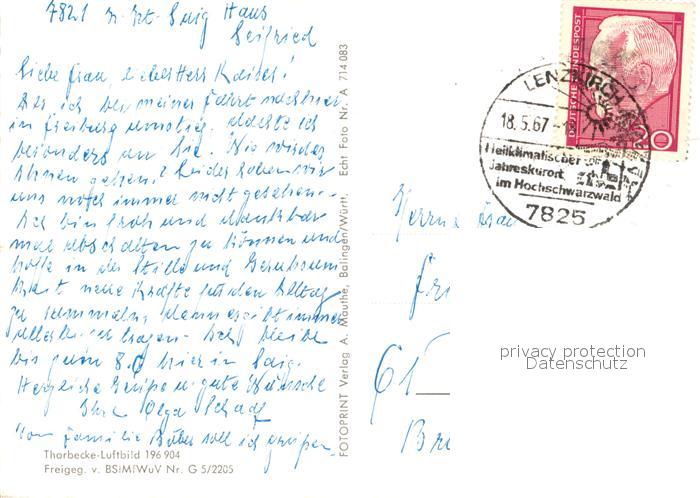 7821 n. Saig Haus
Seifried
Liebe Frau, lieber Herr Kaiser!
Als ich bei meiner Fahrt nach hier
in Freiburg umstieg, dachte ich
besonders an Sie. Wie wird es
Ihnen gehen? Leider haben wir
uns noch immer nicht gesehen.
Ich bin froh und dankbar
mal abschalten zu können und
hoffe in der Stille und Geruhsam
keit neue Kräfte für den Alltag
zu sammeln, denn es gibt immer
allerhand zu tragen. Ich bleibe
bis zum 8.6 hier in Saig.
Herzliche Grüße u. gute Wünsche
Ihre Olga Schaaf
Von Familie soll ich grüßen.
Thorbecke-Luftbild 196 904
Freigeg. v. BStMfWuV Nr. G 5/2205
FOTOPRINT Verlag A. Mauthe, Balingen/Württ. Echt Foto Nr. A 714 083
DEUTSCHE BUNDESPOST
20
LENZKIRCH
18.5.67
Heilklimatischer
Jahreskurort
im Hochschwarzwald
7825
Herrn u. Frau
61
privacy protection
Datenschutz